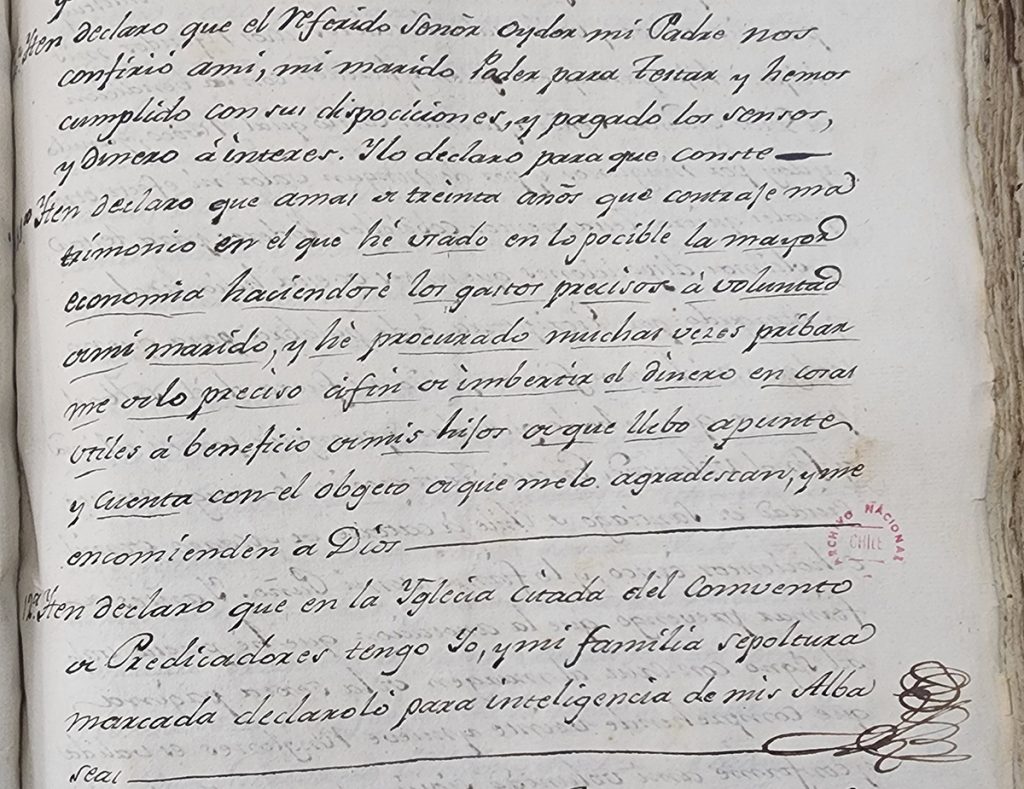 Yten declaro que el Rferido señor oydor mi Padre nos
confirió ami, mi marido Poder para testar y hemos
cumplido con sus dispociciones, y pagado los sensos,
y dinero á interes. Y lo declaro para que conste
Yten declaro que amas de treinta años que contraje ma
trimonio en el que hé usado en lo pocible la mayor
economia haciendosé los gastos precisos á voluntad
de mi marido, y hé procurado muchas vezes pribar
me de lo preciso áfin de imbertir el dinero en cosas
utiles á beneficio de mis hijos de que llebo apunte
y cuenta con el obgeto de que melo agradescan, y me
encomienden a Dios
12ª Yten declaro que en la Yglecia citada del Convento
de Predicadores tengo Yo, y mi familia sepoltura
marcada declaroló para inteligencia de mis Alba
seas
ARCHIVO NACIONAL
CHILE